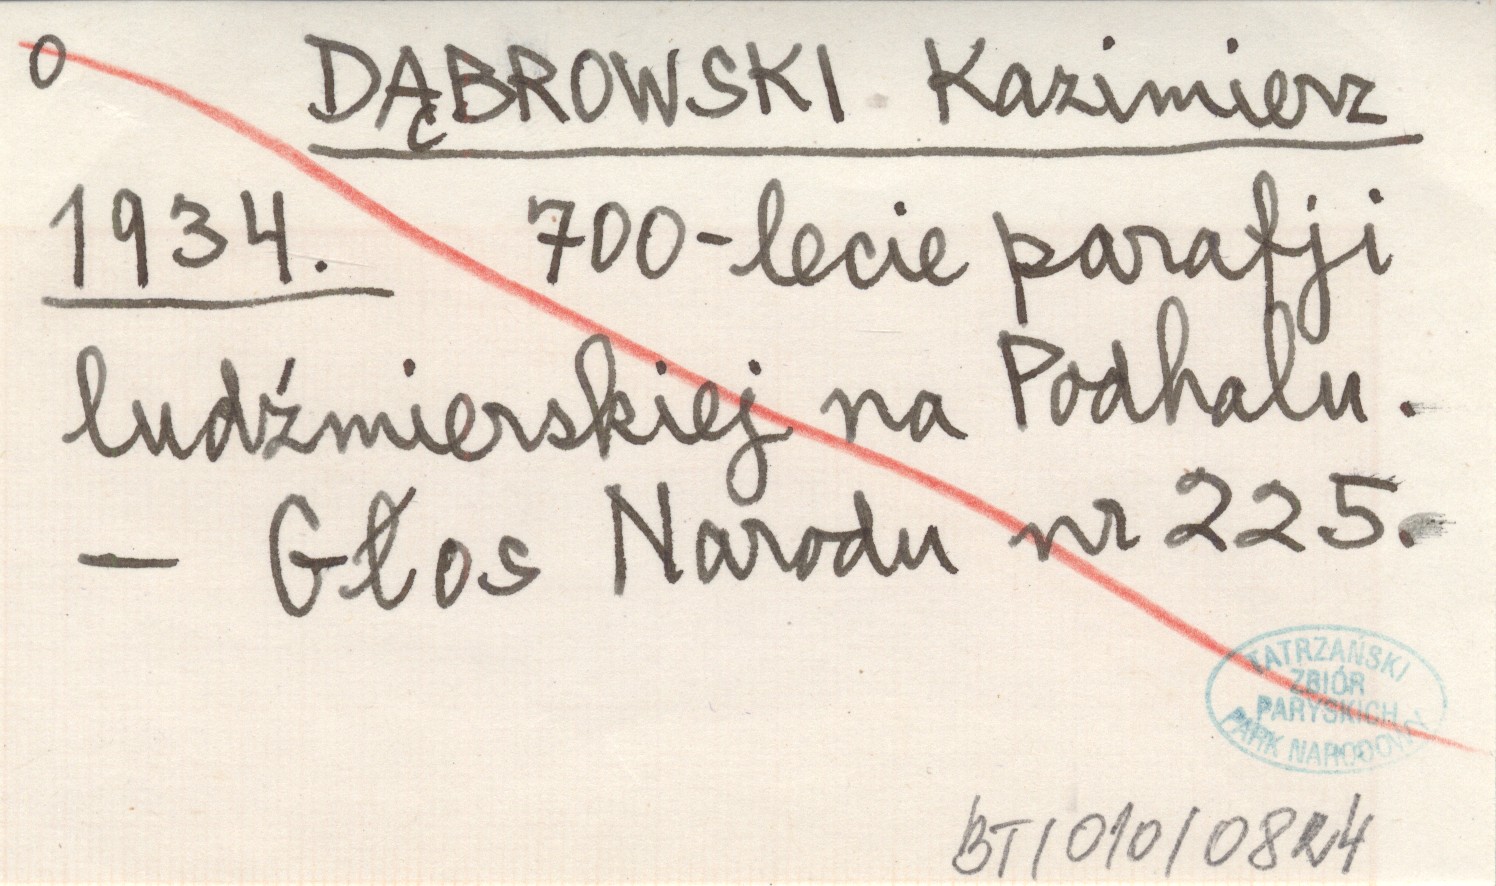 o DĄBROWSKI Kazimierz
1934. 700-lecie parafji
ludźmierskiej na Podhalu.
— Głos Narodu nr 225.
TATRZAŃSKI
ZBIÓR
PARYSKICH
PARK NARODOWY
BT/010/0824